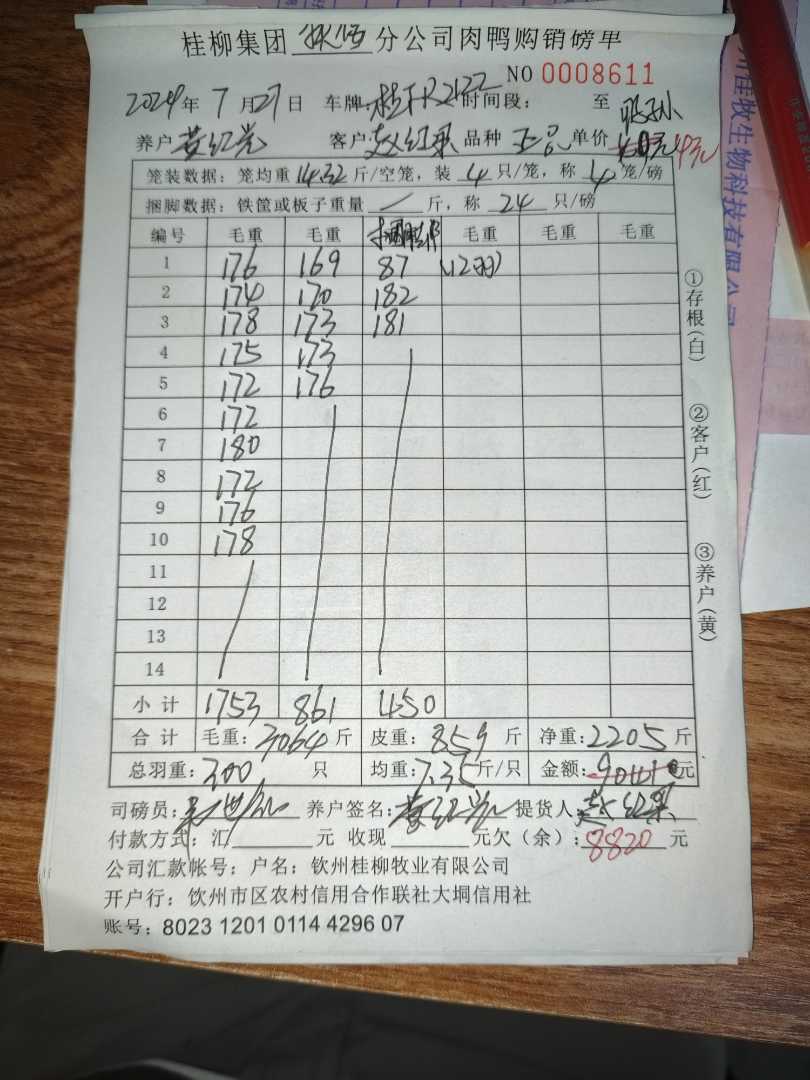 桂柳集团 钦州 分公司肉鸭购销磅单
NO 0008611
2024年 7月27日 车牌: 时间段: 至
养户 黄红光 客户 赵红果 品种 正品 单价 4元
笼装数据: 笼均重 14.32 斤/空笼, 装 4 只/笼, 称 4 笼/磅
捆脚数据: 铁筐或板子重量 / 斤, 称 24 只/磅
编号 毛重 毛重 毛重 毛重 毛重
1 176 169 87 (12羽)
2 174 170 182
3 178 173 181
4 175 173
5 172 176
6 172
7 180
8 172
9 176
10 178
11
12
13
14
小计 1753 861 450
合计 毛重: 3064 斤 皮重: 859 斤 净重: 2205 斤
总羽重: 300 只 均重: 7.35 斤/只 金额: 元
司磅员: 养户签名: 黄红光 提货人 赵红果
付款方式: 汇 元 收现 元欠(余): 8820 元
公司汇款帐号: 户名: 钦州桂柳牧业有限公司
开户行: 钦州市区农村信用合作联社大垌信用社
账号: 8023 1201 0114 4296 07
①存根(白)
②客户(红)
③养户(黄)
州佳牧生物科技有限公司